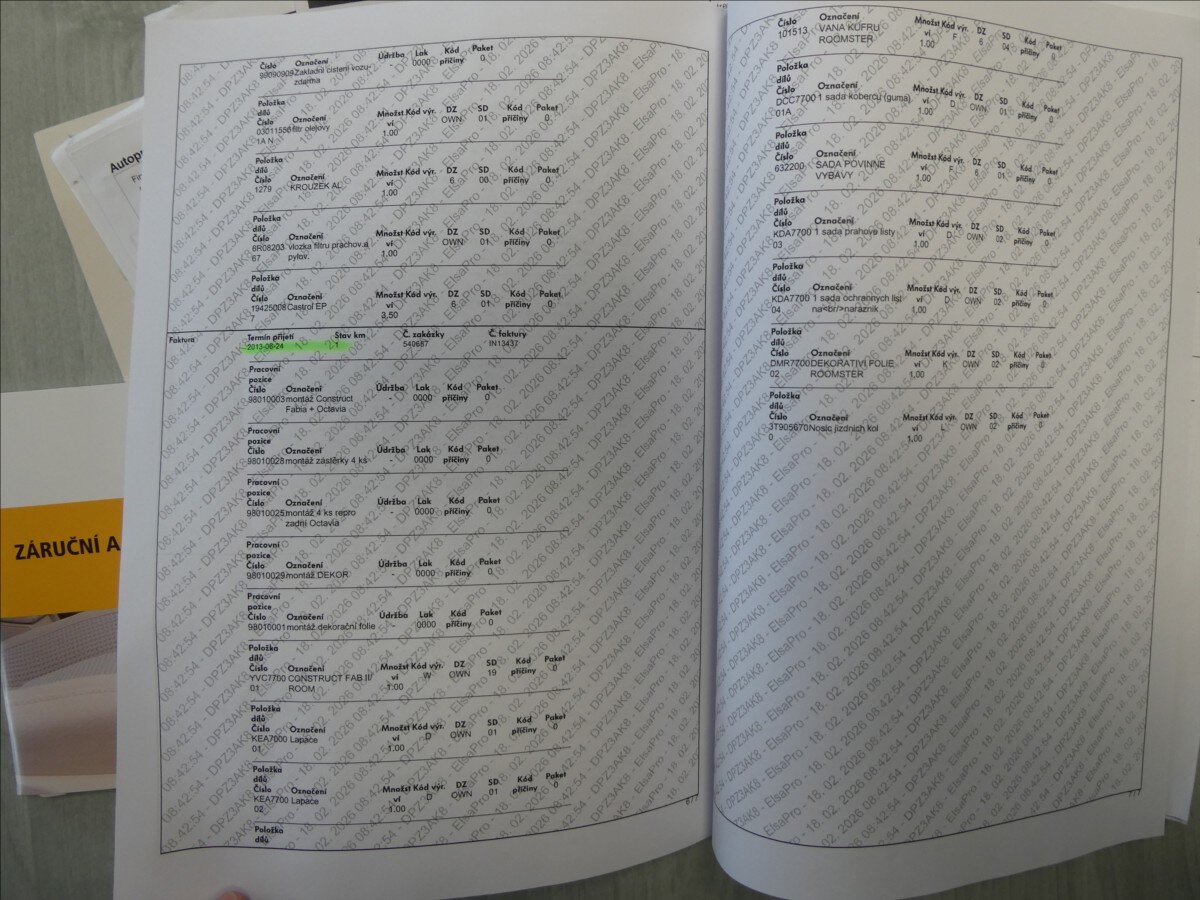 Autop
Fir
ZÁRUČNÍ A
Číslo Označení Údržba Lak Kód Paket
99090909 Zakladni cisteni vozu- - 0000 příčiny 0
zdarma
Položka
dílů
Číslo Označení Množst Kód výr. DZ SD Kód Paket
03011556 filtr olejovy ví OWN 01 příčiny 0
1A N 1.00
Položka
dílů
Číslo Označení Množst Kód výr. DZ SD Kód Paket
1279 KROUZEK AL ví 6 00 příčiny 0
1.00
Položka
dílů
Číslo Označení Množst Kód výr. DZ SD Kód Paket
6R08203 vlozka filtru prachov.a ví OWN 01 příčiny 0
67 pylov. 1.00
Položka
dílů
Číslo Označení Množst Kód výr. DZ SD Kód Paket
19425008 Castrol EP ví 6 01 příčiny 0
7 3,50
Faktura Termín přijetí Stav km Č. zakázky Č. faktury
2013-06-24 1 540687 IN13437
Pracovní
pozice
Číslo Označení Údržba Lak Kód Paket
98010003 montáž Construct - 0000 příčiny 0
Fabia + Octavia
Pracovní
pozice
Číslo Označení Údržba Lak Kód Paket
98010028 montáž zástěrky 4 ks - 0000 příčiny 0
Pracovní
pozice
Číslo Označení Údržba Lak Kód Paket
98010025 montáž 4 ks repro - 0000 příčiny 0
zadní Octavia
Pracovní
pozice
Číslo Označení Údržba Lak Kód Paket
98010029 montáž DEKOR - 0000 příčiny 0
Pracovní
pozice
Číslo Označení Údržba Lak Kód Paket
98010001 montáž dekorační folie - 0000 příčiny 0
Položka
dílů
Číslo Označení Množst Kód výr. DZ SD Kód Paket
YVC7700 CONSTRUCT FAB II/ ví W OWN 19 příčiny 0
01 ROOM 1.00
Položka
dílů
Číslo Označení Množst Kód výr. DZ SD Kód Paket
KEA7000 Lapace ví D OWN 01 příčiny 0
01 1.00
Položka
dílů
Číslo Označení Množst Kód výr. DZ SD Kód Paket
KEA7700 Lapace ví D OWN 01 příčiny 0
02 1.00
Položka
dílů
6/7
Číslo Označení Množst Kód výr. DZ SD Kód Paket
101513 VANA KUFRU ví F 6 04 příčiny 0
ROOMSTER 1.00
Položka
dílů
Číslo Označení Množst Kód výr. DZ SD Kód Paket
DCC7700 1 sada kobercu (guma) ví D OWN 01 příčiny 0
01A 1.00
Položka
dílů
Číslo Označení Množst Kód výr. DZ SD Kód Paket
632200 SADA POVINNE ví F 6 01 příčiny 0
VYBAVY 1.00
Položka
dílů
Číslo Označení Množst Kód výr. DZ SD Kód Paket
KDA7700 1 sada prahove listy ví D OWN 02 příčiny 0
03 1.00
Položka
dílů
Číslo Označení Množst Kód výr. DZ SD Kód Paket
KDA7700 1 sada ochrannych list ví D OWN 02 příčiny 0
04 na<br/>naraznik 1.00
Položka
dílů
Číslo Označení Množst Kód výr. DZ SD Kód Paket
DMR7700 DEKORATIVI FOLIE ví K OWN 02 příčiny 0
02 ROOMSTER 1.00
Položka
dílů
Číslo Označení Množst Kód výr. DZ SD Kód Paket
3T905670 Nosic jizdnich kol ví L OWN 02 příčiny 0
0 1.00
7/7
DPZ3AK8 - ElsaPro - 18. 02. 2026 08:42:54